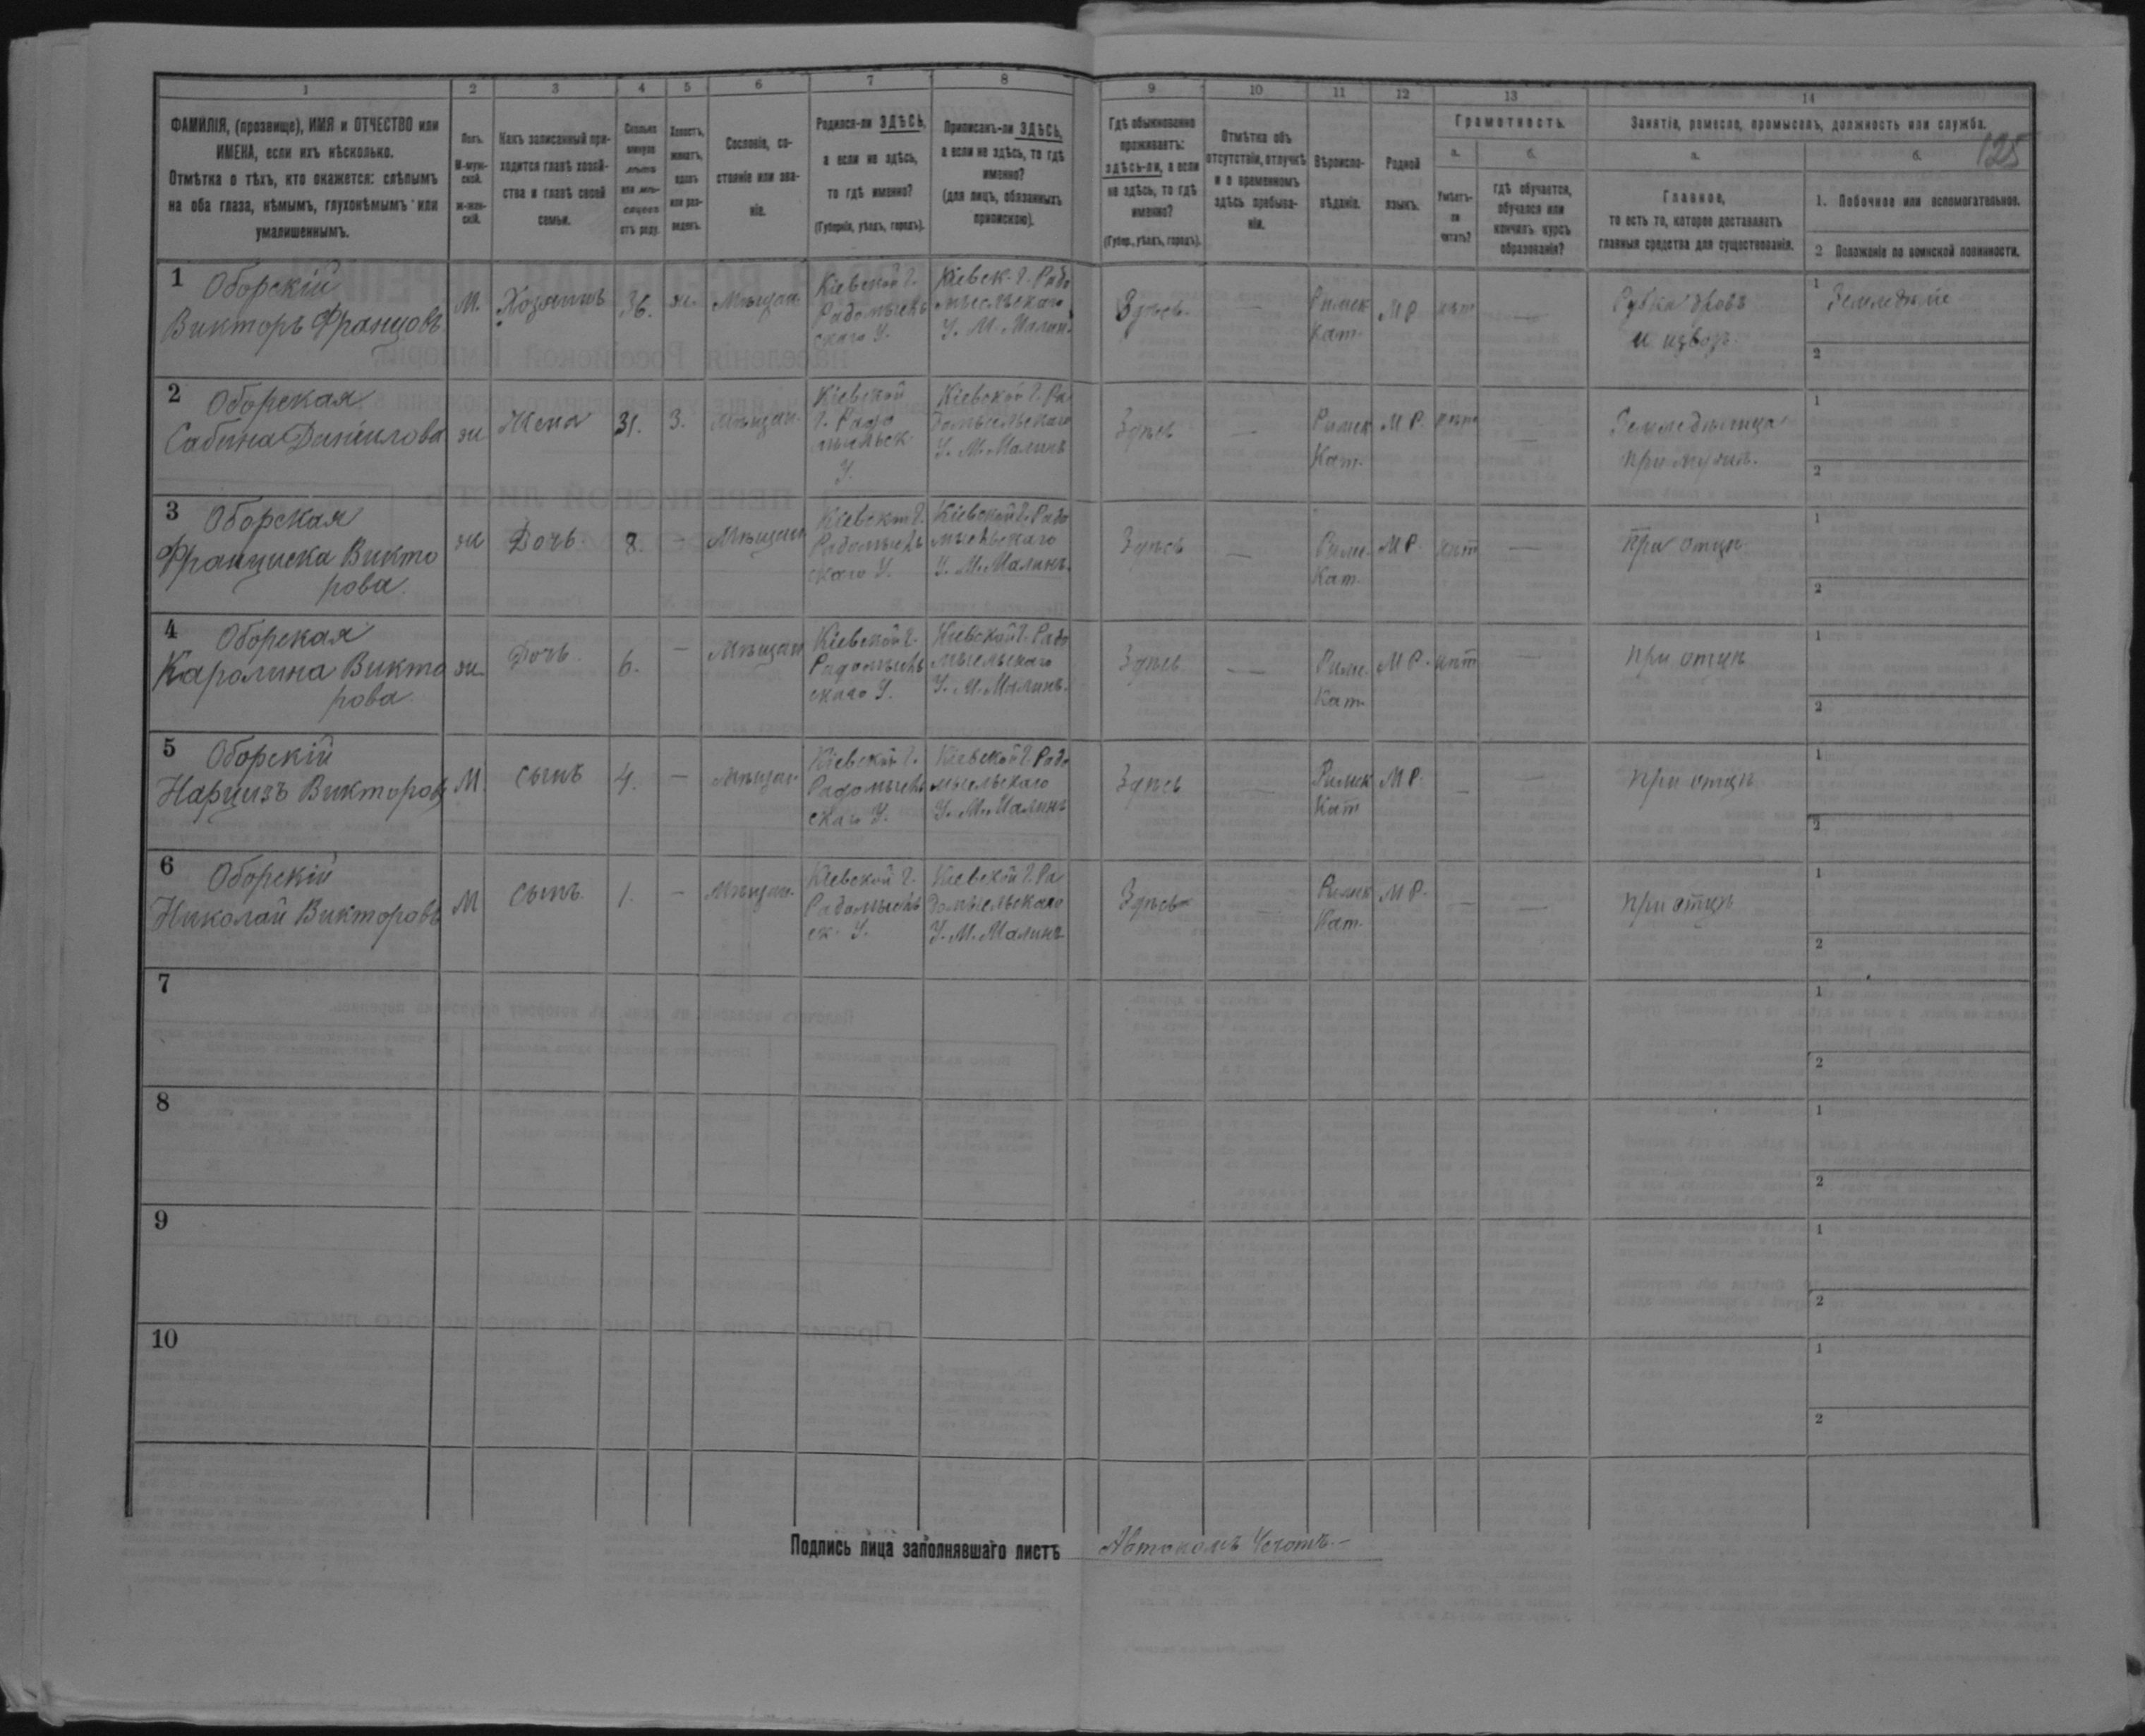 1 2 3 4 5 6 7 8 9 10 11 12 13 14
ФАМИЛІЯ, (прозвище), ИМЯ и ОТЧЕСТВО или
ИМЕНА, если ихъ нѣсколько.
Отмѣтка о тѣхъ, кто окажется: слѣпымъ
на оба глаза, нѣмымъ, глухонѣмымъ или
умалишеннымъ.
Полъ.
М-муж-
ской.
ж-жен-
скій.
Какъ записанный при-
ходится главѣ хозяй-
ства и главѣ своей
семьи.
Сколько
минуло
лѣтъ
или мѣ-
сяцевъ
отъ роду.
Холостъ,
женатъ,
вдовъ
или раз-
веденъ.
Сословіе, со-
стояніе или зва-
ніе.
Родился-ли ЗДѢСЬ,
а если не здѣсь,
то гдѣ именно?
(Губернія, уѣздъ, городъ).
Приписанъ-ли ЗДѢСЬ,
а если не здѣсь, то гдѣ
именно?
(для лицъ, обязанныхъ
припискою).
Гдѣ обыкновенно
проживаетъ:
здѣсь-ли, а если
не здѣсь, то гдѣ
именно?
(Губер., уѣздъ, городъ).
Отмѣтка объ
отсутствіи, отлучкѣ
и о временномъ
здѣсь пребыва-
ніи.
Вѣроиспо-
вѣданіе.
Родной
языкъ.
Грамотность.
а.
Умѣетъ-
ли
читать?
б.
гдѣ обучается,
обучался или
кончилъ курсъ
образованія?
Занятіе, ремесло, промыселъ, должность или служба.
а.
Главное,
то есть то, которое доставляетъ
главныя средства для существованія.
б.
125
1. Побочное или вспомогательное.
2 Положеніе по воинской повинности.
1 Оборскій
Викторъ Францовъ
М.
Хозяинъ
36.
ж.
Мѣщан.
Кіевской Г.
Радомысль
скаго У.
Кіевск. Г. Радо
мысльскаго
У. М. Малин.
Здѣсь.
—
Римск
Кат.
МР
нѣт
—
Рубка дровъ
и извозъ.
1 Земледѣліе
2
2 Оборская
Сабина Данилова
ж
Жена
31.
З.
Мѣщан.
Кіевской
Г. Радо
мысльск.
У.
Кіевской Г. Ра
домысльскаго
У. М. Малинъ
Здѣсь
—
Римск
Кат.
М Р.
нѣт
—
Земледѣлица
при мужѣ.
1
2
3 Оборская
Франциска Викто
рова.
ж
Дочь.
8.
—
Мѣщан
Кіевской Г.
Радомысль
скаго У.
Кіевской Г. Радо
мысльскаго
У. М. Малинъ.
Здѣсь
—
Римс.
Кат.
М Р.
нѣт
—
При отцѣ
1
2
4 Оборская
Каролина Викто
рова.
ж.
Дочь.
6.
—
Мѣщан
Кіевской Г.
Радомысль
скаго У.
Кіевской Г. Радо
мысльскаго
У. М. Малинъ.
Здѣсь
—
Римс.
Кат.
М Р.
нѣт
—
При отцѣ
1
2
5 Оборскій
Нарцизъ Викторовъ
М
сынъ
4.
—
Мѣщан
Кіевской Г.
Радомысль
скаго У.
Кіевской Г. Радо
мысльскаго
У. М. Малинъ
Здѣсь
—
Римск
Кат
М Р.
—
—
При отцѣ
1
2
6 Оборскій
Николай Викторовъ
М
сынъ.
1.
—
Мѣщан.
Кіевской Г.
Радомысль
ск. У.
Кіевской Г. Ра
домысльскаго
У. М. Малинъ
Здѣсь
—
Римск
Кат.
М Р.
—
—
При отцѣ
1
2
7
1
2
8
1
2
9
1
2
10
1
2
Подпись лица заполнявшаго листъ